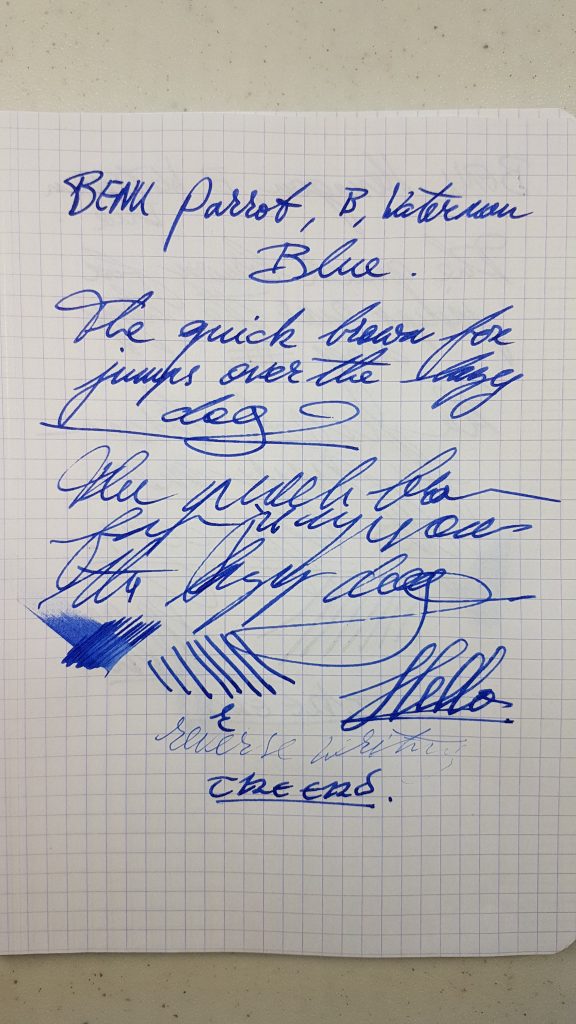 BENU Parrot, B, Waterman
Blue.
The quick brown fox
jumps over the lazy
dog
The quick brow
fox jumps over
the lazy dog
Hello
&
reverse writing
CHEERS.